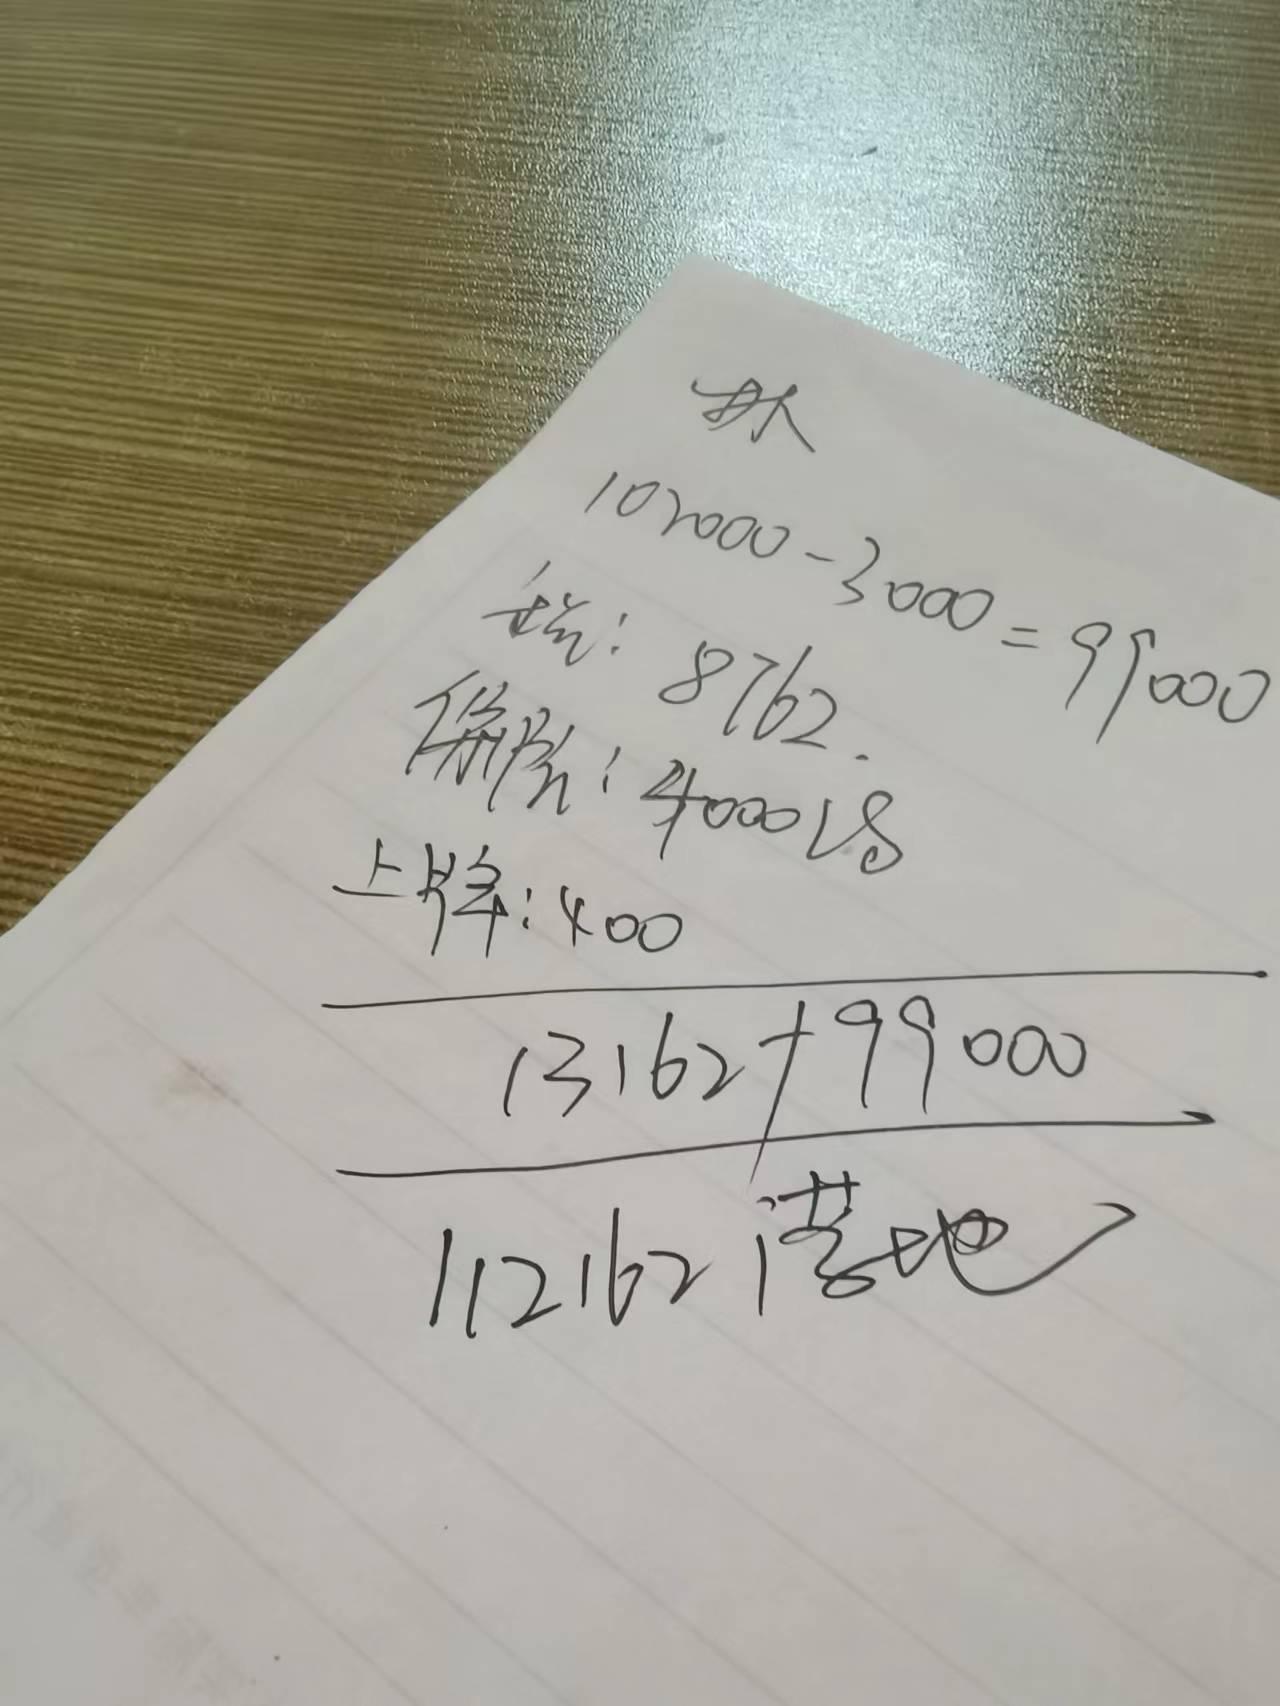 102000-3000=99000
税: 8762.
保险: 4000
上牌: 400
13162+99000
112162 落地